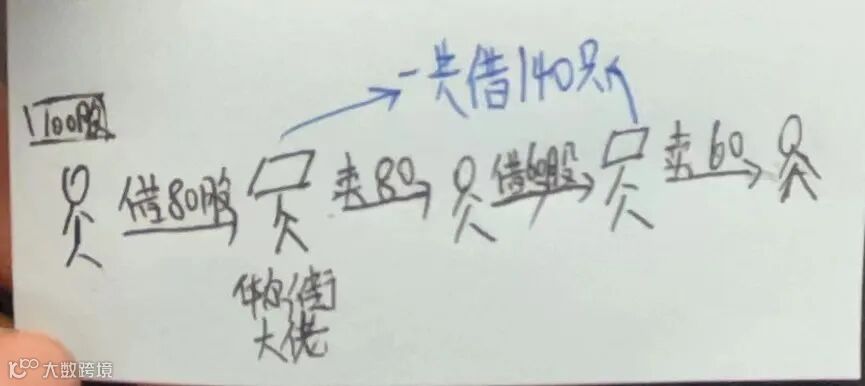 一共借140只
100股
借80股
卖80
借60股
卖60
华尔街
大佬
大数跨境